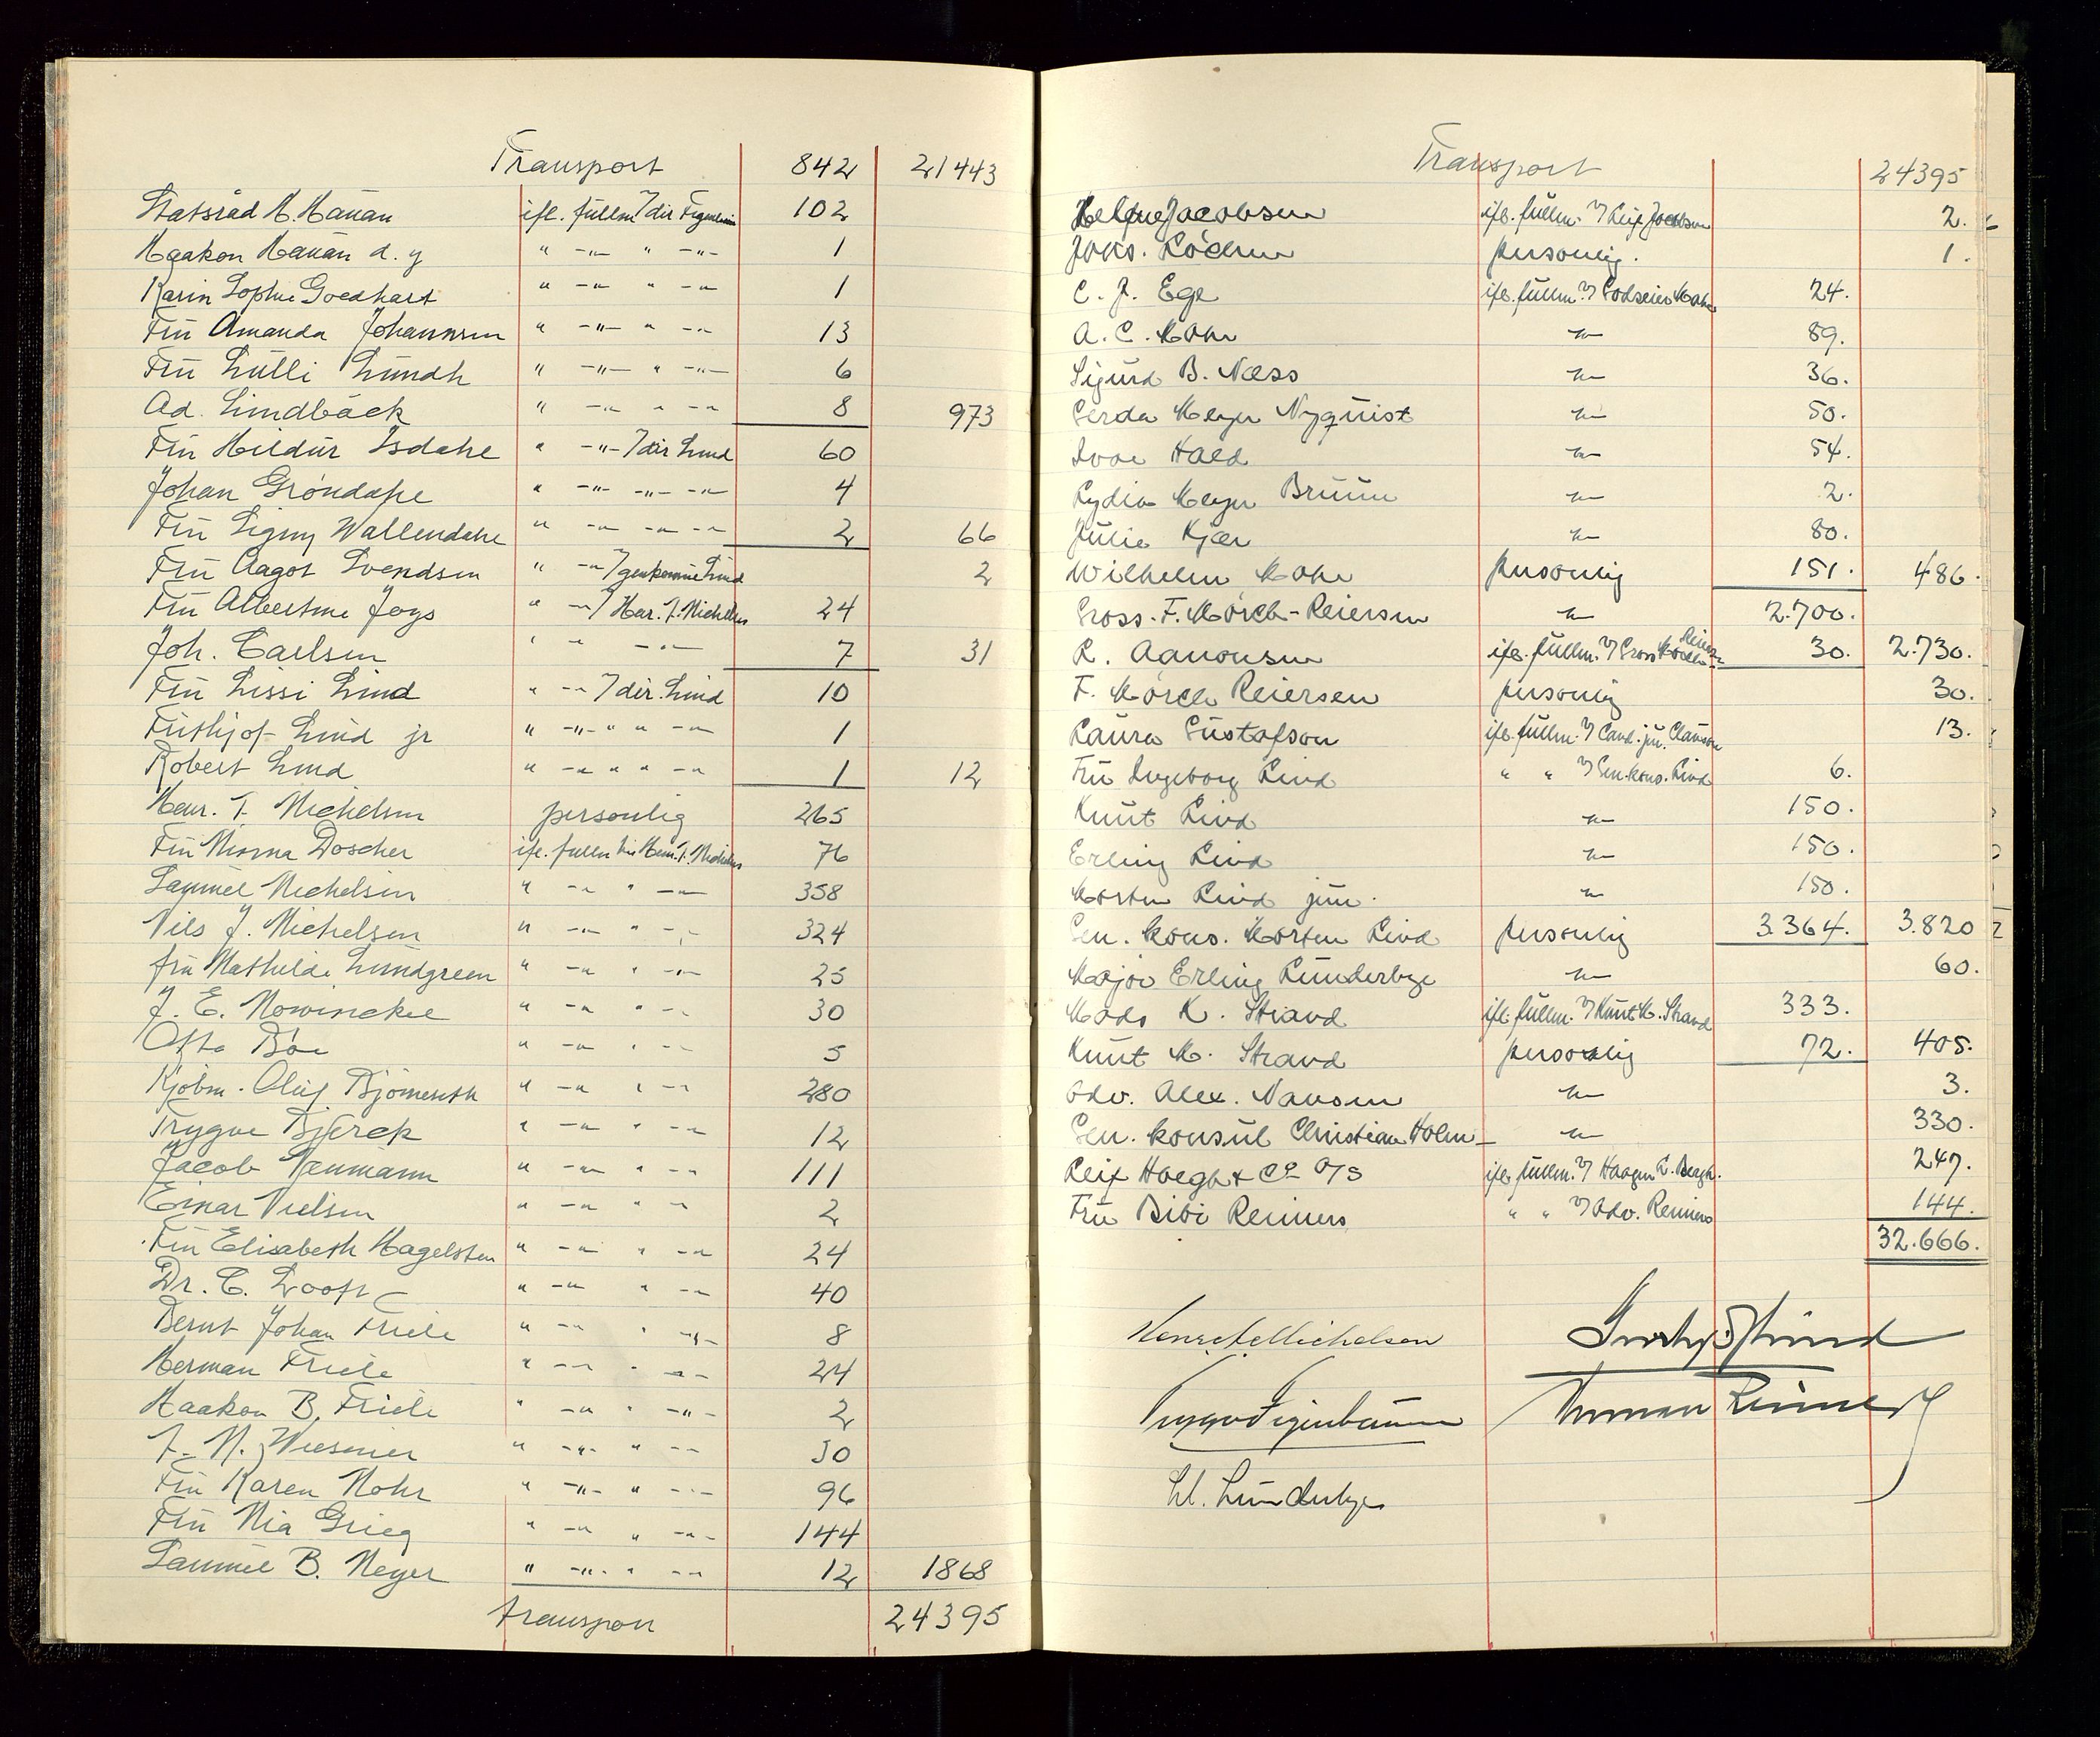 Transport 842 21443
Statsråd H. Hauan ifl. fullm 7 dir Figenbaum 102
Haakon Hauan d. y " -"- " -"- 1
Karin Sophie Goedhart " -"- " -"- 1
Frü Amanda Johannsen " -"- " -"- 13
Frü Lülli Lündh " -"- " -"- 6
Ad. Lindbäck " -"- " -"- 8 973
Frü Hildür Isdahl " -"- 7 dir Lind 60
Johan Gröndahl " -"- -"- -"- 4
Frü Signy Wallendahl " -"- -"- -"- 2 66
Frü Aagot Svendsen " -"- 7 genkonsul Lind 2
Frü Albertine Joys " -"- 7 Henr. F. Michelsen 24
Joh. Carlsen " -"- -"- 7 31
Frü Lissi Lind " -"- 7 dir. Lind 10
Frithjof Lind jr " -"- " " -"- 1
Robert Lind " -"- " " -"- 1 12
Henr. F. Michelsen personlig 265
Frü Minna Doscher ifl. fullm hr. Henr. F. Michelsen 76
Samuel Michelsen " -"- " -"- 358
Nils J. Michelsen " -"- " -"- 324
frü Mathilde Lundgreen " -"- " -"- 25
J. E. Mowinckel " -"- " -"- 30
Otto Böe " -"- " -"- 5
Kjöbm. Oluf Björneseth " -"- " -"- 280
Trygve Bjerck " -"- " -"- 12
Jacob Neumann " -"- " -"- 111
Einar Nielsen " -"- " -"- 2
Frü Elisabeth Hagelsten " -"- " -"- 24
Dr. C. Looft " -"- " -"- 40
Bernt Johan Friele " -"- " -"- 8
Herman Friele " -"- " -"- 24
Haakon B. Friele " -"- " -"- 2
F. M. Wiesener " -"- " -"- 30
Frü Karen Mohr " -"- " -"- 96
Frü Mia Grieg " -"- " -"- 144
Samuel B. Meyer " -"- " -"- 12 1868
transport 24395
Transport 24395
Helene Jacobsen ifl. füllm. 7 Leif Jacobsen 2.
Johs. Rödum personlig. 1.
C. J. Ege ifl. füllm. 7 Godseier Mohr 24.
A. C. Mohr -"- 89.
Sigurd B. Næss -"- 36.
Gerda Meyer Nyquist -"- 50.
Ivar Hald -"- 54.
Lydia Meyer Bruun -"- 2.
Julie Kjær -"- 80.
Wilhelm Mohr personlig 151. 486.
Gross. F. Mörch-Reiersen -"- 2.700.
R. Aanonsen ifl. füllm. 7 Gross Mörch Reiersen 30. 2.730.
F. Mörch Reiersen personlig 30.
Laura Gustafson ifl. füllm. 7 Cand. jur. Clauson 13.
Frü Ingeborg Lind " " 7 Gen.kons. Lind 6.
Knut Lind -"- 150.
Erling Lind -"- 150.
Morten Lind jun. -"- 150.
Gen. kons. Morten Lind personlig 3.364. 3.820
Major Erling Lunderbye -"- 60.
Mads K. Strand ifl. füllm. 7 Knut M. Strand 333.
Knut M. Strand personlig 72. 405.
Adv. Alex. Nansen -"- 3.
Gen. konsul Christian Holm -"- 330.
Leif Hoegh & Co A/S ifl. füllm. 7 Haagen L. Bergh. 247.
Frü Bibi Reimers " " 7 Adv. Reimers 144.
32.666.
Henr. F. Michelsen Frithjof Lind
Trygve Figenbaum Herman Reimers
El. Lunderbye